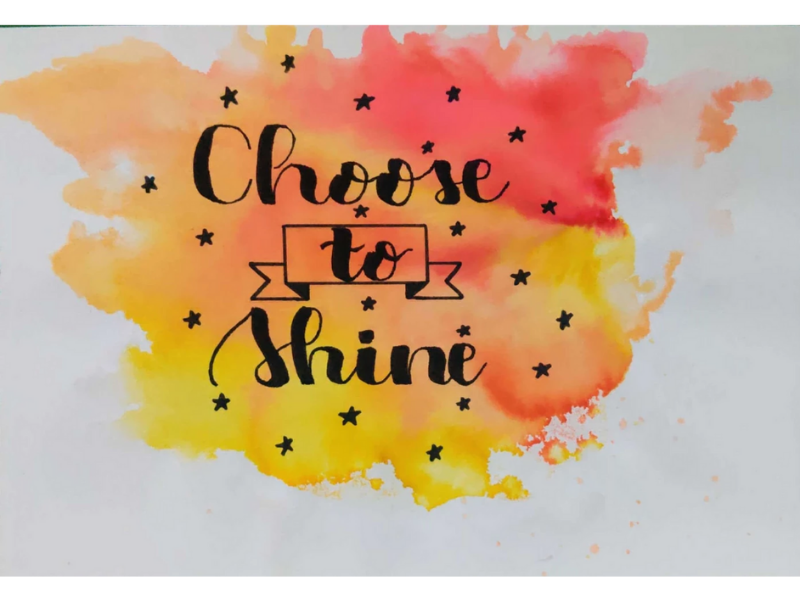 Choose
to
Shine